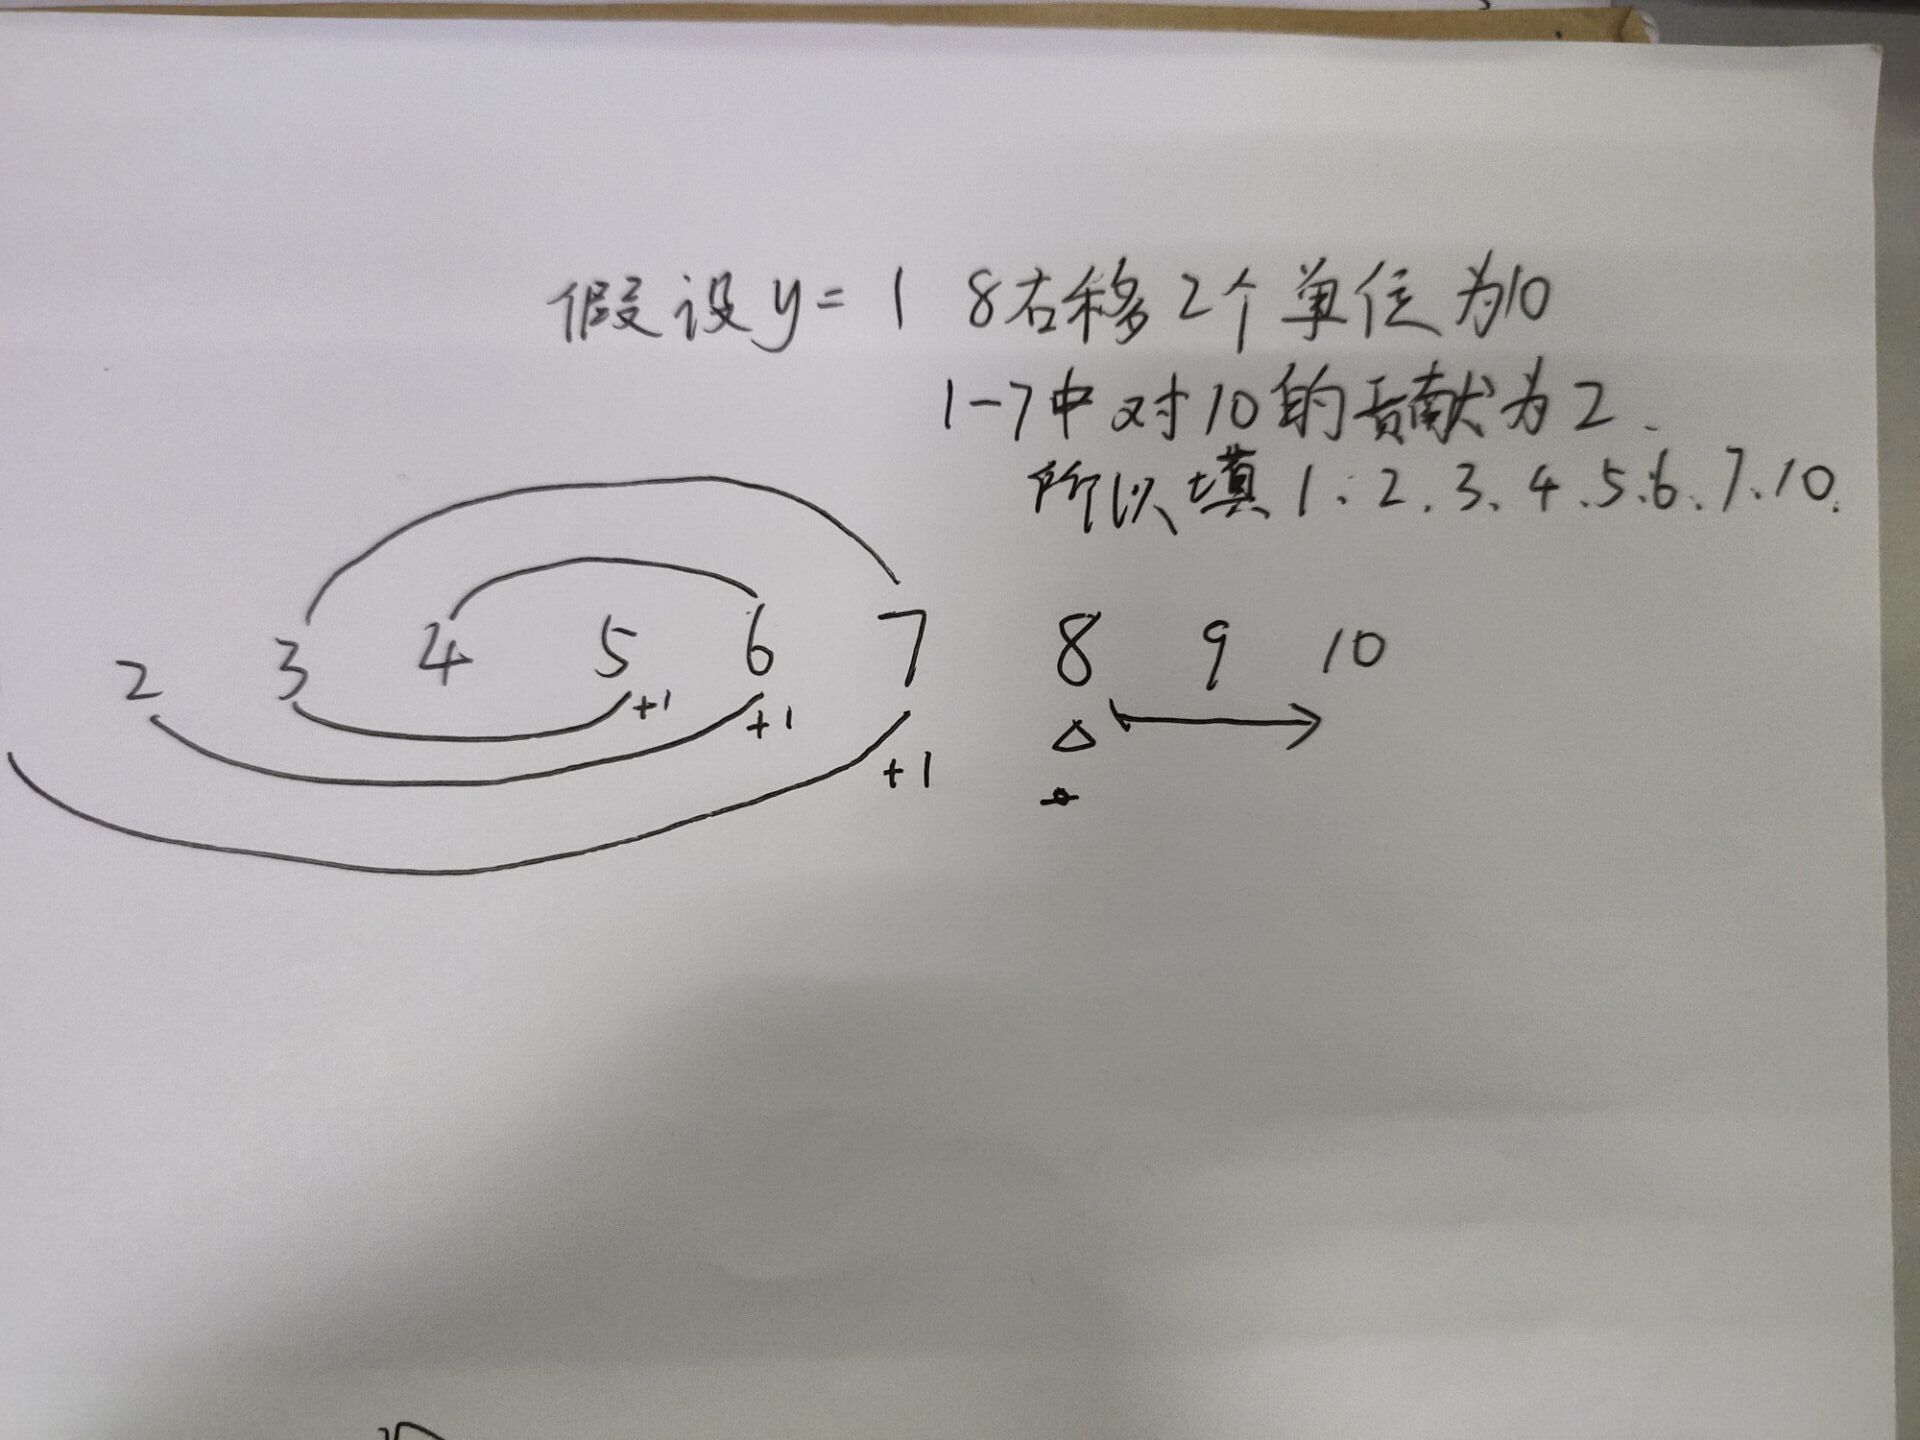 假设y=1 8右移2个单位为10
1-7中对10的贡献为2.
所以填1、2.3、4.5.6、7.10.
2 3 4 5 6 7 8 9 10
+1 +1
+1